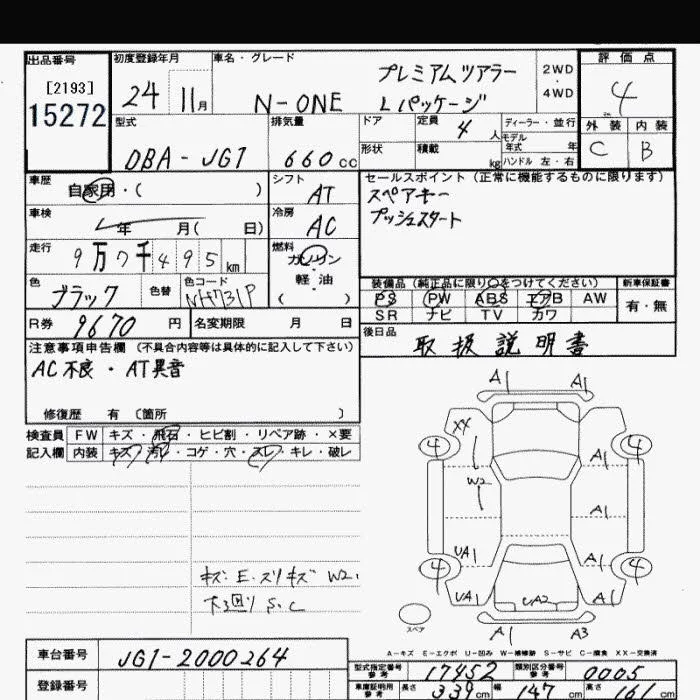 出品番号 初度登録年月 車名・グレード 評価点
[2193] 15272
24 11月 N-ONE プレミアムツアラー Lパッケージ 2WD・4WD 4
外装 内装
C B
型式 排気量 ドア 定員 4人 ディーラー・並行
形状 積載 kg モデル年式 年
ハンドル 左・右
DBA-JG1 660cc
車歴 自家用・( ) シフト AT
セールスポイント(正常に機能するものに限ります)
スペアキー
プッシュスタート
車検 年 月( 日) 冷房 AC
走行 9万7千495km 燃料 ガソリン・軽油 ( )
色 ブラック 色替 色コード NH731P
装備品(純正品に限り○をつけてください) 新車保証書
PS PW ABS エアB AW 有・無
SR ナビ TV カワ
R券 9670円 名変期限 月 日
後日品 取扱説明書
注意事項申告欄(不具合内容等は具体的に記入して下さい)
AC不良・AT異音
修復歴 有〔箇所 〕
検査員記入欄 FW キズ・飛石・ヒビ割・リペア跡・×要
内装 キズ・汚レ・コゲ・穴・スレ・キレ・破レ
A1 A1
XX
4 4
W2 A1
UA1 A1
4 4
UA1 UA2 A1
スペア A1 A3
キズ・E・スリキズ W2.
下回り S.C
A-キズ E-エクボ U-凹み W-補修跡 S-サビ C-腐食 XX-交換済
車台番号 JG1-2000264
登録番号
型式指定番号 参考 17452 類別区分番号 参考 0005
車庫証明用 参考 長さ 339cm 幅 147cm 高さ 161cm